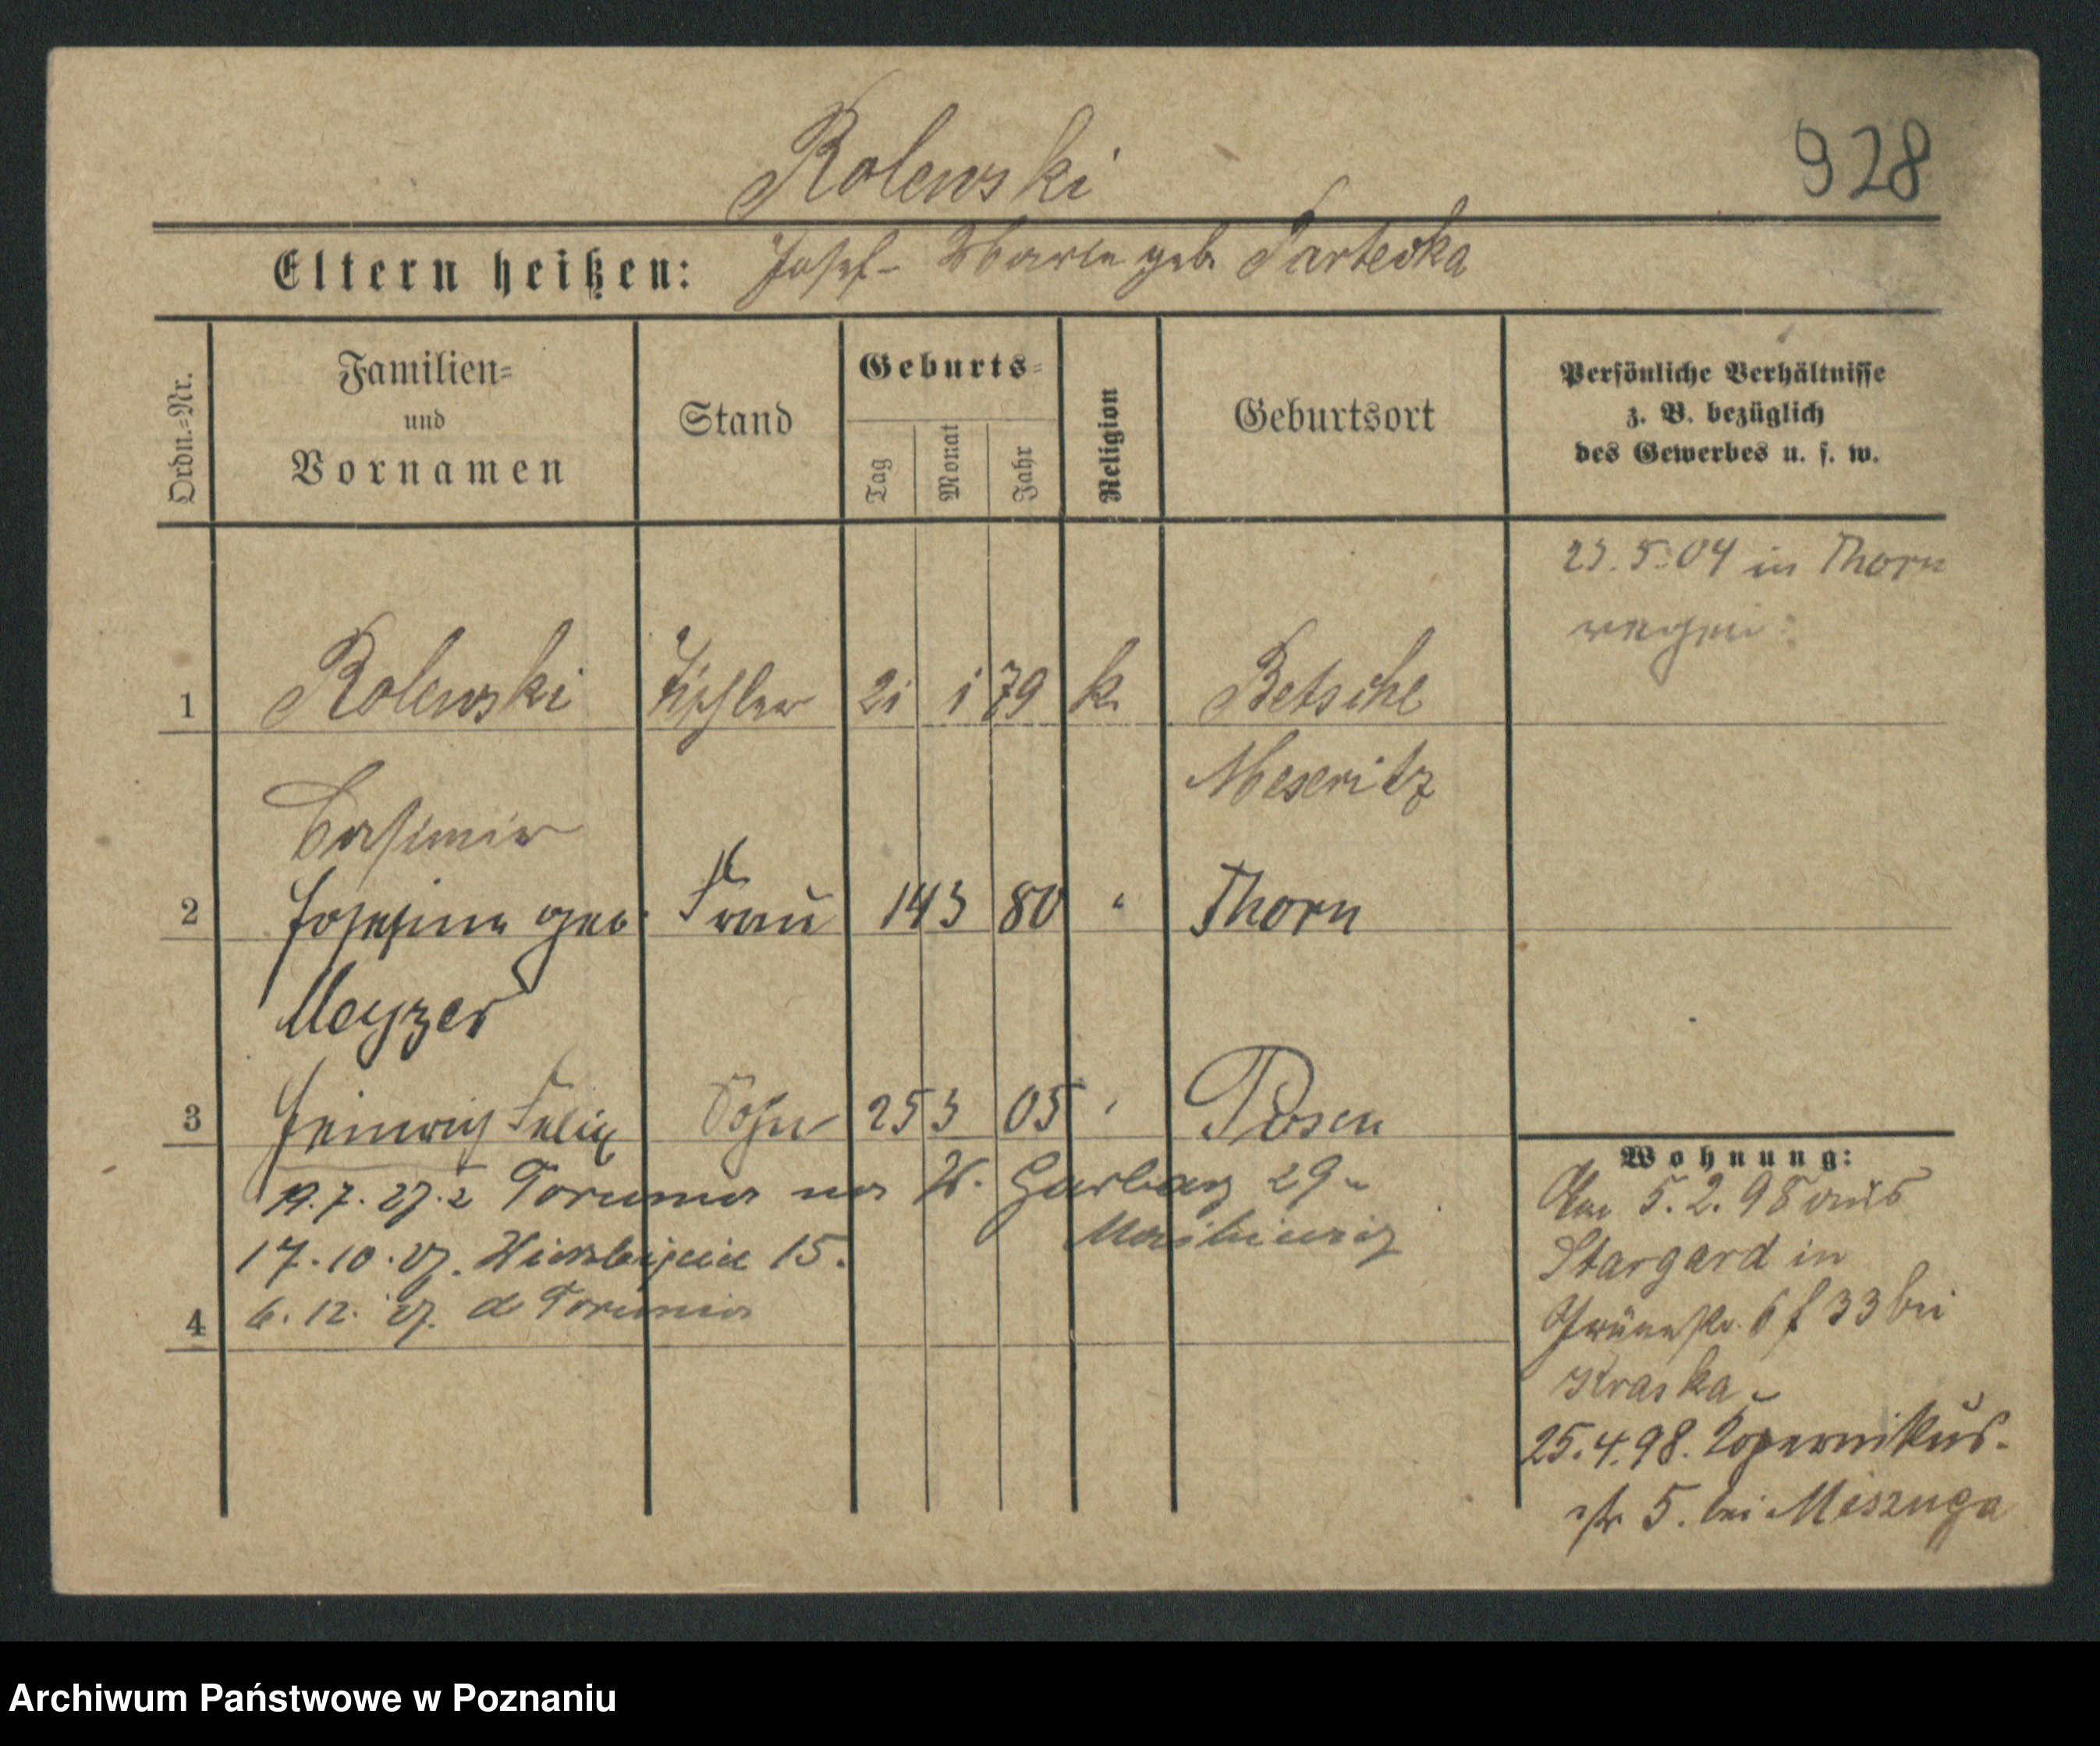 928
Rolewski
Eltern heißen: Josef - Marie geb. Partecka
Ordn.=Nr.
Familien=
und
Vornamen
Stand
Geburts=
Tag
Monat
Jahr
Religion
Geburtsort
Persönliche Verhältnisse
z. B. bezüglich
des Gewerbes u. s. w.
5.04 in Thorn
1 Rolewski Tischler 21 1 79 k. Betsche
Meseritz
Casimir
2 Josefine geb. Frau 14 3 80 " Thorn
Meyzer
3 Heinrich Felix Sohn 25 3 05 " Posen
19.7.27. z Torunia na W. Garbary 29
17.10.27. Wierzbięcice 15.
4 6.12.27. do Torunia
Wohnung:
Am 5.2.98 aus
Stargard in
Grünestr. 6 f 33 bei
Kraska
25.4.98. Kopernikus-
str 5. bei Miszuga
Archiwum Państwowe w Poznaniu